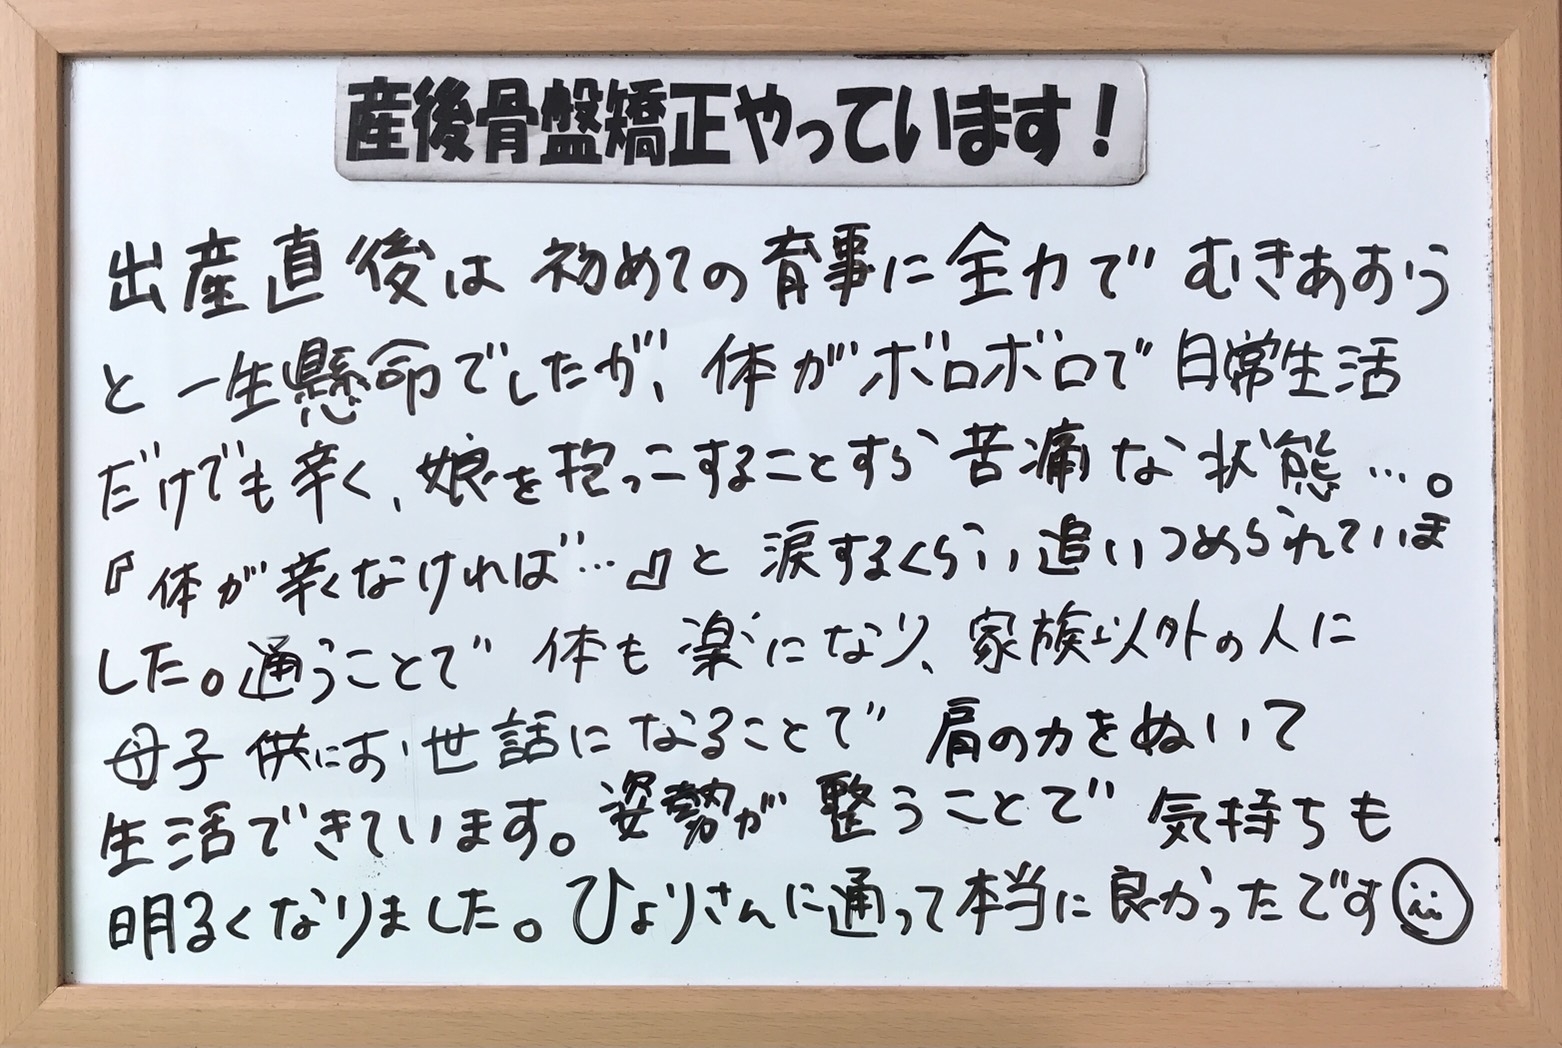 産後骨盤矯正やっています！
出産直後は初めての育事に全力でむきあおう
と一生懸命でしたが、体がボロボロで日常生活
だけでも辛く、娘を抱っこすることすら苦痛な状態…。
『体が辛くなければ…』と涙するくらい追いつめられていま
した。通うことで体も楽になり、家族以外の人に
母子供にお世話になることで肩の力をぬいて
生活できています。姿勢が整うことで気持ちも
明るくなりました。ひよりさんに通って本当に良かったです